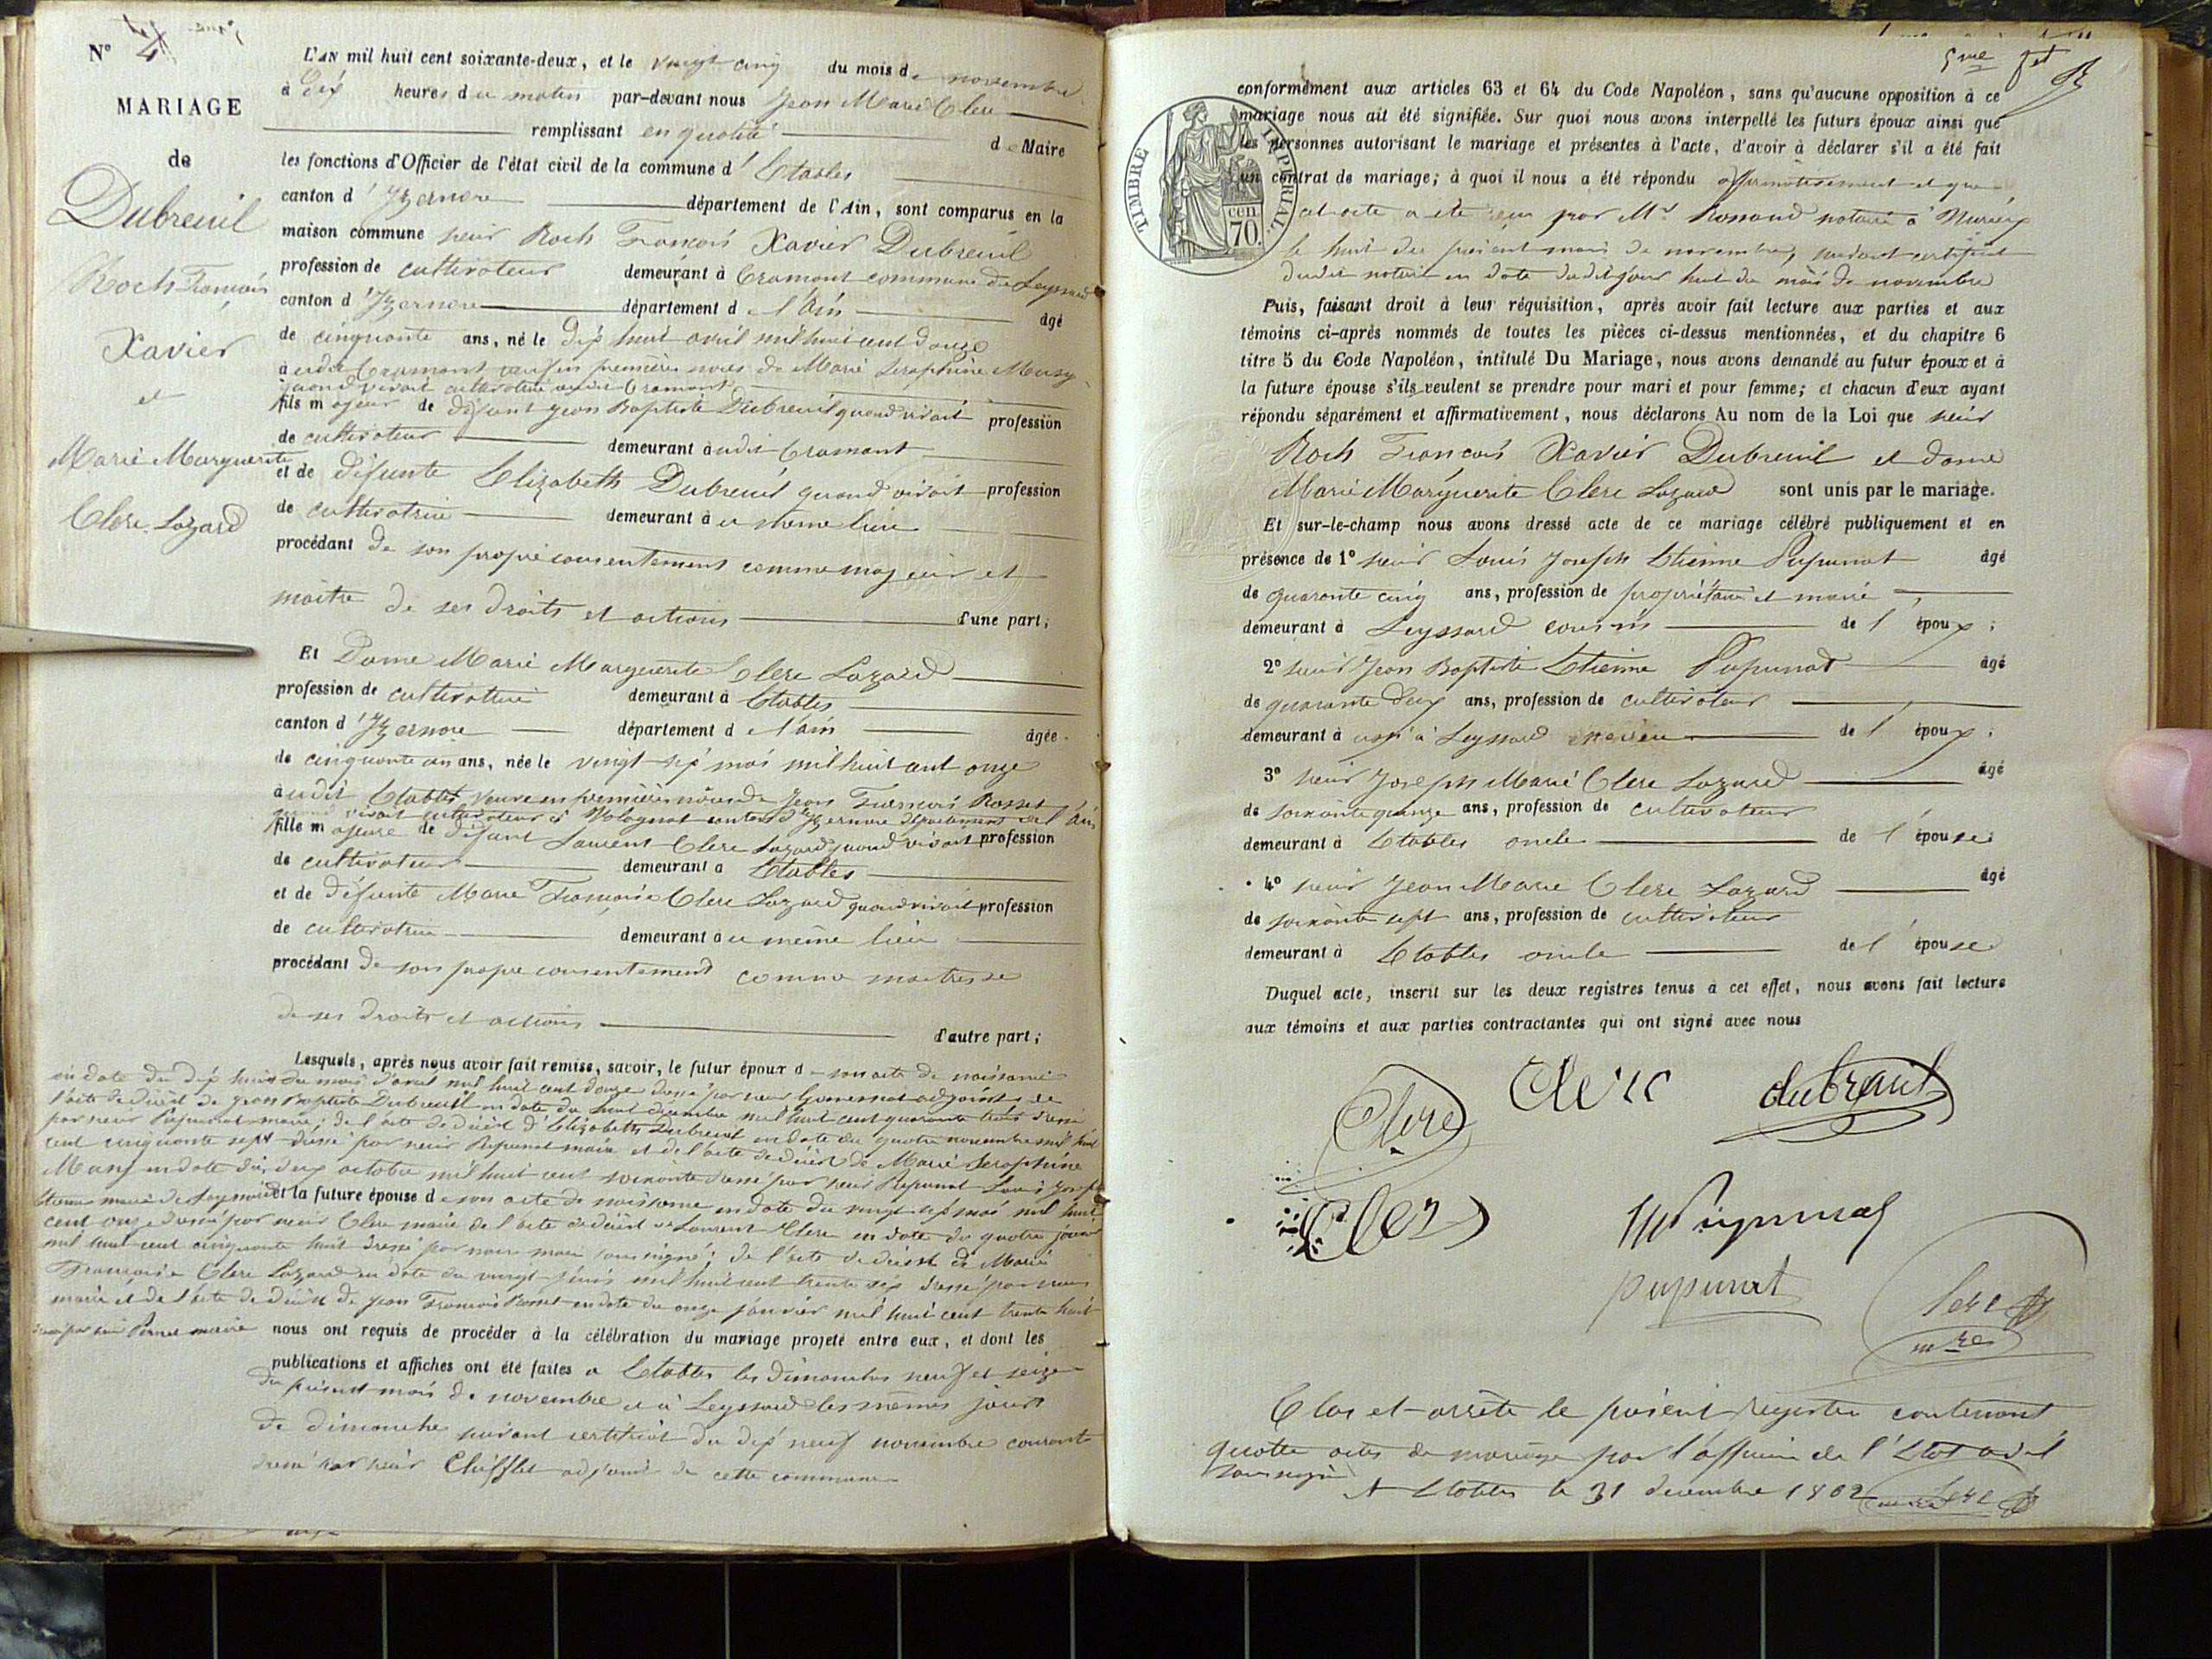 N° 4
MARIAGE
de
Dubreuil
Roch François
Xavier
et
Marie Marguerite
Clerc Lazard
L'AN mil huit cent soixante-deux, et le vingt cinq du mois de novembre
à dix heures du matin par-devant nous Jean Marie Clerc
remplissant en qualité de Maire
les fonctions d'Officier de l'état civil de la commune d'Etables
canton d'Izernore département de l'Ain, sont comparus en la
maison commune sieur Roch François Xavier Dubreuil
profession de cultivateur demeurant à Cramont commune de Leyssard
canton d'Izernore département de l'Ain âgé
de cinquante ans, né le dix huit avril mil huit cent douze
audit Cramont veuf en premières noces de Marie Seraphine
quand vivait cultivatrice audit Cramont
fils majeur de défunt Jean Baptiste Dubreuil quand vivait profession
de cultivateur demeurant audit Cramont
et de défunte Elizabeth Dubreuil quand vivait profession
de cultivatrice demeurant au même lieu
procédant de son propre consentement comme majeur et
maitre de ses droits et actions d'une part;
Et Dame Marie Marguerite Clerc Lazard
profession de cultivatrice demeurant à Etables
canton d'Izernore département de l'ain âgée
de cinquante un ans, née le vingt six mai mil huit cent onze
audit Etables veuve en premières noces de Jean François Rosset
quand vivait cultivateur à Volognat canton d'Izernore département de l'Ain
fille majeure de défunt Laurent Clerc Lazard quand vivait profession
de cultivateur demeurant à Etables
et de défunte Marie Françoise Clerc Lazard quand vivait profession
de cultivatrice demeurant au même lieu
procédant de son propre consentement comme maitresse
de ses droits et actions d'autre part;
Lesquels, après nous avoir fait remise, savoir, le futur époux de son acte de naissance
en date du dix huit du mois d'avril mil huit cent douze dressé par sieur adjoint de
l'acte de décès de Jean Baptiste Dubreuil en date du huit décembre mil huit cent quarante trois dressé
par sieur Pupunat maire; de l'acte de décès d'Elizabeth Dubreuil en date du quatre novembre mil huit
cent cinquante sept dressé par sieur Pupunat maire et de l'acte de décès de Marie Seraphine
en date du deux octobre mil huit cent soixante dressé par sieur Pupunat Louis Joseph
Etienne maire de Leyssard et la future épouse de son acte de naissance en date du vingt six mai mil huit
cent onze dressé par sieur Clerc maire de l'acte de décès de Laurent Clerc en date du quatre janvier
mil huit cent cinquante huit dressé par nous maire soussigné; de l'acte de décès de Marie
Françoise Clerc Lazard en date du vingt juin mil huit cent trente six dressé par nous
maire et de l'acte de décès de Jean François Rosset en date du onze janvier mil huit cent trente huit
dressé par sieur Pernet maire nous ont requis de procéder à la célébration du mariage projeté entre eux, et dont les
publications et affiches ont été faites à Etables les dimanches neuf et seize
du présent mois de novembre et à Leyssard les mêmes jours
de dimanche suivant certificat du dix neuf novembre courant
dressé par sieur Chifflet adjoint de cette commune
5me fet
conformément aux articles 63 et 64 du Code Napoléon, sans qu'aucune opposition à ce
mariage nous ait été signifiée. Sur quoi nous avons interpellé les futurs époux ainsi que
les personnes autorisant le mariage et présentes à l'acte, d'avoir à déclarer s'il a été fait
un contrat de mariage; à quoi il nous a été répondu affirmativement et que
cet acte a été reçu par Me notaire à
le huit du présent mois de novembre, suivant certificat
dudit notaire en date dudit jour huit du mois de novembre
TIMBRE IMPERIAL
cen
70.
Puis, faisant droit à leur réquisition, après avoir fait lecture aux parties et aux
témoins ci-après nommés de toutes les pièces ci-dessus mentionnées, et du chapitre 6
titre 5 du Code Napoléon, intitulé Du Mariage, nous avons demandé au futur époux et à
la future épouse s'ils veulent se prendre pour mari et pour femme; et chacun d'eux ayant
répondu séparément et affirmativement, nous déclarons Au nom de la Loi que sieur
Roch François Xavier Dubreuil et dame
Marie Marguerite Clerc Lazard sont unis par le mariage.
Et sur-le-champ nous avons dressé acte de ce mariage célébré publiquement et en
présence de 1° sieur Louis Joseph Etienne Pupunat âgé
de quarante cinq ans, profession de propriétaire et maire
demeurant à Leyssard cousin de l'époux;
2° sieur Jean Baptiste Etienne Pupunat âgé
de quarante deux ans, profession de cultivateur
demeurant à aussi à Leyssard de l'époux;
3° sieur Joseph Marie Clerc Lazard âgé
de soixante quinze ans, profession de cultivateur
demeurant à Etables oncle de l'épouse
4° sieur Jean Marie Clerc Lazard âgé
de soixante sept ans, profession de cultivateur
demeurant à Etables oncle de l'épouse
Duquel acte, inscrit sur les deux registres tenus à cet effet, nous avons fait lecture
aux témoins et aux parties contractantes qui ont signé avec nous
Clerc Clerc dubreuil
Clerc
pupunat
Clerc
mre
Clos et arrêté le présent registre contenant
quatre actes de mariage par l'officier de l'Etat civil
soussigné
A Etables le 31 decembre 1862